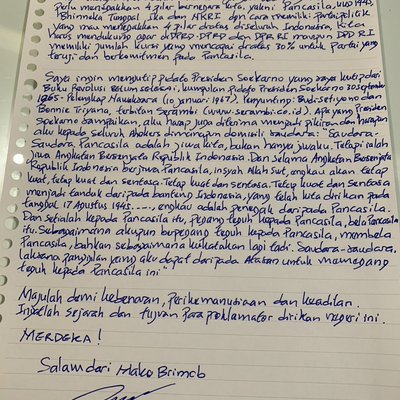 perlu menegakkan 4 pilar bernegara kita, yakni Pancasila, UUD 1945,
Bhinneka Tunggal Ika dan NKRI dgn cara memiliki partai politik
yang mau menegakkan 4 pilar diatas diseluruh Indonesia, kita
harus mendukung agar di DPRD-DPRD dan DPR RI maupun DPD RI
memiliki jumlah kursi yang mencapai diatas 30% untuk Partai yang
teruji dan berkomitmen pada Pancasila.
Saya ingin mengutip pidato Presiden Soekarno yang saya kutip dari
Buku Revolusi belum selesai, kumpulan pidato Presiden Soekarno 30 september
1965 - Pelengkap Nawaksara (10 januari 1967). Penyunting: Budi Setiyono dan
Bonnie Triyana terbitan Serambi (www.serambi.co.id). Apa yang Presiden
Soekarno sampaikan, aku harap juga diterima menjadi pikiran dan harapan
aku kepada seluruh Ahokers dimanapun domisili saudara: "Saudara-
Saudara, Pancasila adalah jiwa kita, bukan hanya jiwaku. Tetapi ialah
jiwa Angkatan Bersenjata Republik Indonesia. Dan selama Angkatan Bersenjata
Republik Indonesia berjiwa Pancasila, insyah Allah swt, engkau akan tetap
kuat, tetap kuat dan sentosa. Tetap kuat dan sentosa. Tetap kuat dan sentosa
menjadi tandak daripada banteng Indonesia, yang telah kita dirikan pada
tanggal 17 Agustus 1945. --- engkau adalah penegak daripada Pancasila.
Dan setialah kepada Pancasila itu, pegang teguh kepada Pancasila, bela Pancasila
itu. Sebagaimana akupun berpegang teguh kepada Pancasila, membela
Pancasila, bahkan sebagaimana kukatakan lagi tadi. Saudara-saudara,
laksana panggilan yang aku dapat daripada Atasan untuk memegang
teguh kepada Pancasila ini"
Majulah demi kebenaran, perikemanusiaan dan keadilan.
Ingatlah sejarah dan tujuan para proklamator dirikan negeri ini.
MERDEKA!
Salam dari Mako Brimob